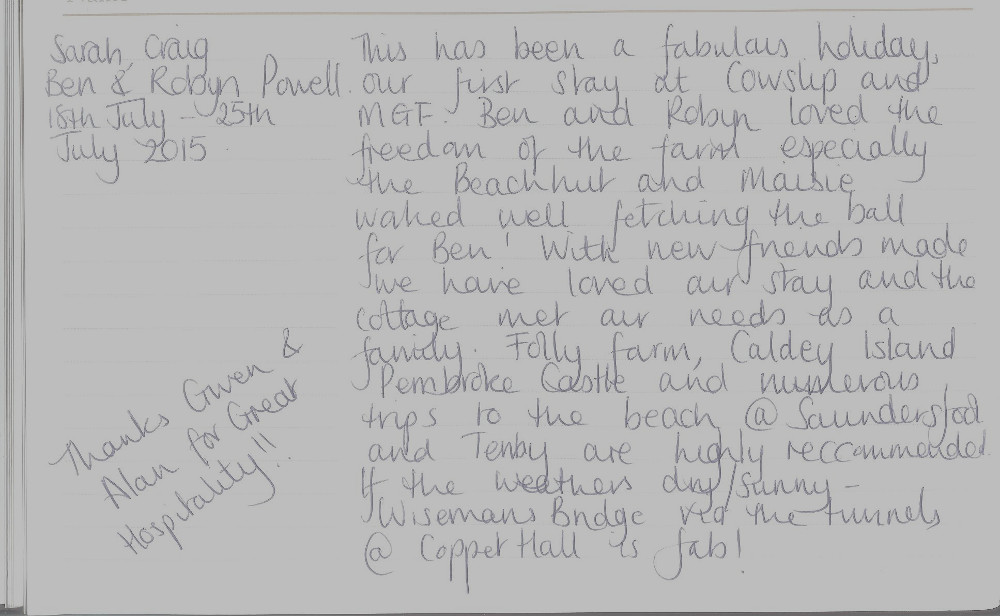 Sarah, Craig
Ben & Robyn Powell.
18th July - 25th
July 2015.
This has been a fabulous holiday,
our first stay at Cowslip and
MGF. Ben and Robyn loved the
freedom of the farm especially
the Beachhut and Maisie
waked well fetching the ball
for Ben! With new friends made
we have loved our stay and the
cottage met our needs as a
family. Folly farm, Caldey Island
Pembroke Castle and numerous
trips to the beach @ Saundersfoot
and Tenby are highly reccommended.
If the weathers dry/sunny -
Wisemans Bridge via the tunnels
@ Coppet Hall is fab!
Thanks Gwen &
Alan for Great
Hospitality!!